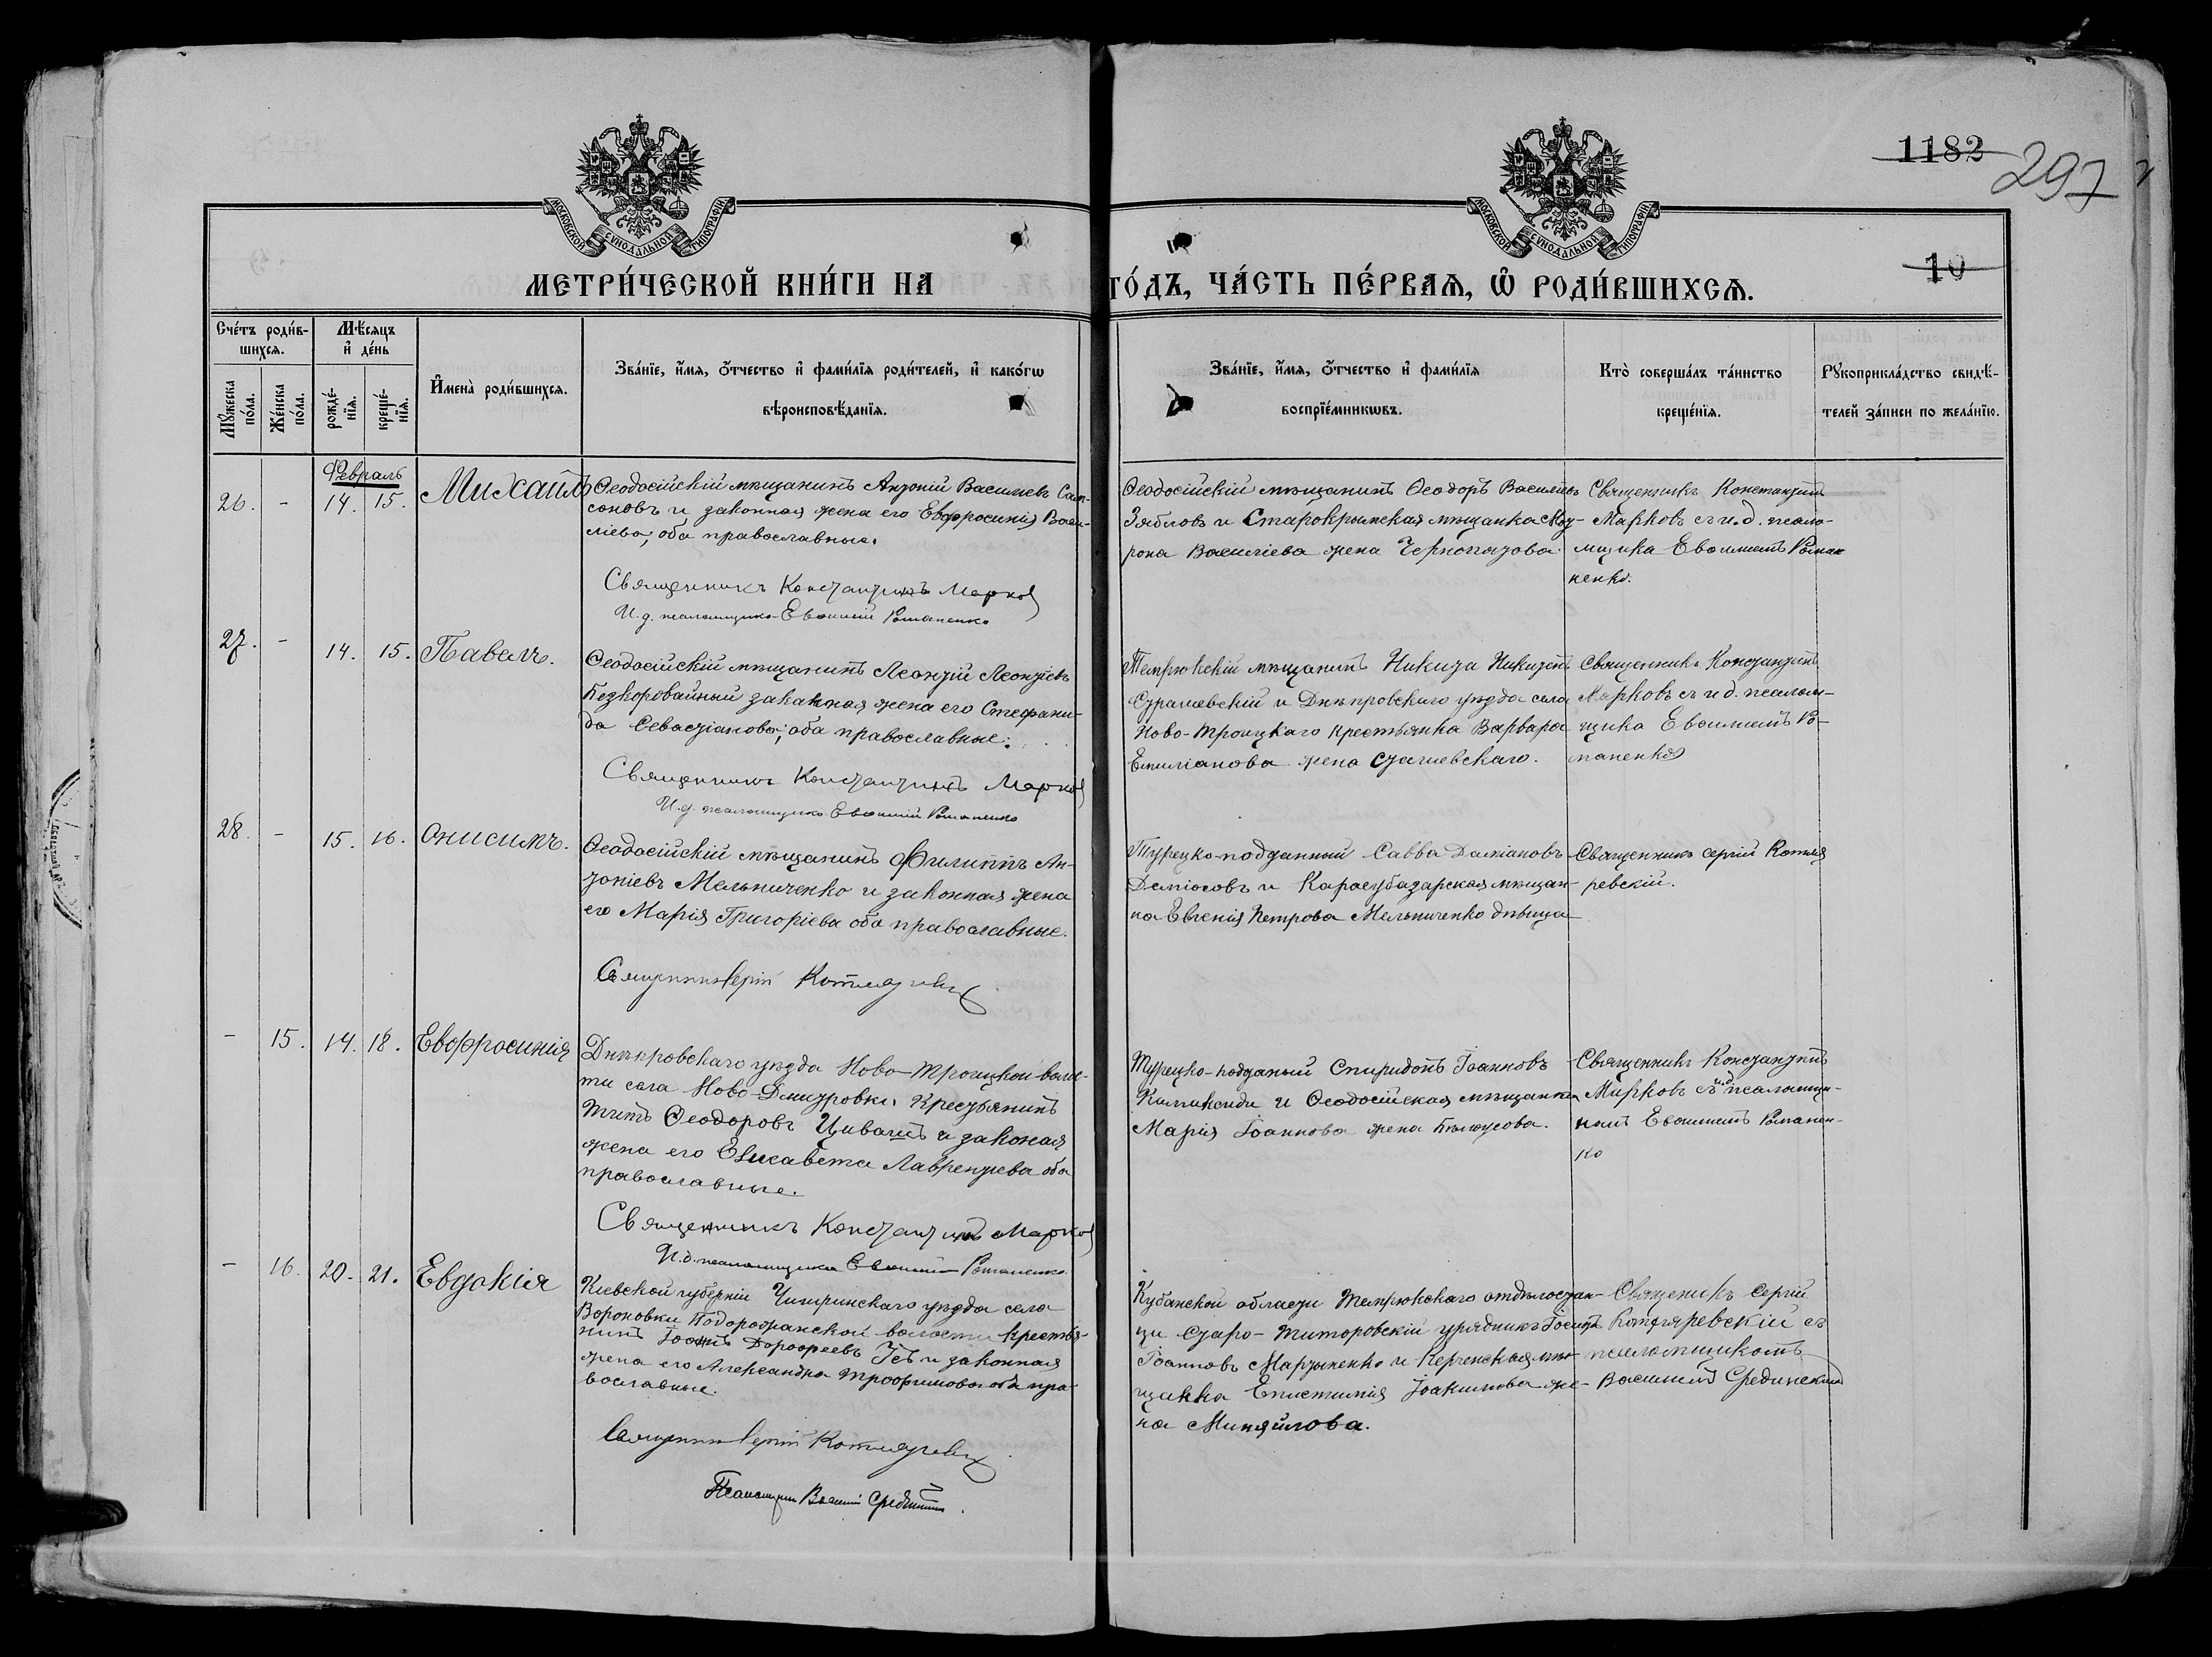 1182
297
10
МОСКОВСКОЙ СѴНОДАЛЬНОЙ ТИПОГРАФІИ
МОСКОВСКОЙ СѴНОДАЛЬНОЙ ТИПОГРАФІИ
МЕТРИ́ЧЕСКОЙ КНИ́ГИ НА ГО́ДЪ, ЧА́СТЬ ПЕ́РВАѦ, Ѽ РОДИ́ВШИХСѦ.
Сче́тъ роди́в-
шихсѧ.
Мꙋ́жеска по́ла.
Же́нска по́ла.
Мѣ́сяцъ
и҆ де́нь
рожде́-
нїѧ.
креще́-
нїѧ.
И҆мена̀ роди́вшихсѧ.
Зва́нїе, и҆́мѧ, ѻ҆́тчество и҆ фами́лїѧ роди́телей, и҆ како́гѡ
вѣроисповѣ́данїѧ.
Зва́нїе, и҆́мѧ, ѻ҆́тчество и҆ фами́лїѧ
воспрїе́мникѡвъ.
Кто̀ соверша́лъ та́инство
креще́нїѧ.
Рꙋкоприкла́дство свидѣ́-
телей за́писи по жела́нїю.
Февраль
26. - 14. 15. Михаилъ
Ѳеодосійскій мѣщанинъ Антоній Васильевъ Сам-
соновъ и законная жена его Евфросинія Васи-
ліева, оба православные.
Священникъ Константинъ Марков
И.д. псаломщика Евѳимій Романенко
Ѳеодосійскій мѣщанинъ Ѳеодоръ Васильевъ
Зябловъ и Старокрымская мѣщанка
Василіева жена
Священникъ Константинъ
Марковъ съ и.д. псало-
мщика Евѳиміемъ Рома
ненко.
27. - 14. 15. Павелъ.
Ѳеодосійскій мѣщанинъ Леонтій Леонтіевъ
Безкоровайный законная жена его Стефани-
да Севастіанова; оба православные.
Священникъ Константинъ Марков
И.д. псаломщика Евѳимій Романенко
Темрюкскій мѣщанинъ Никита Никитинъ
и Днѣпровскаго уѣзда села
Ново-Троицкаго крестьянка Варвара
Емиліанова жена
Священникъ Константинъ
Марковъ съ и д. псалом-
щика Евѳиміемъ Ро-
маненко
28. - 15. 16. Онисимъ.
Ѳеодосійскій мѣщанинъ Филиппъ Ан-
тоніевъ Мельниченко и законная жена
его Марія Григоріева оба православные.
Священникъ Сергій Котляревскій
Турецко-подданный Савва Даміановъ
и Карасубазарская мѣщан-
ка Евгенія Петрова Мельниченко дѣвица
Священникъ Сергій Котля
ревскій.
- 15. 14. 18. Евфросинія
Днѣпровскаго уѣзда Ново-Троицкой волос-
ти села Ново-Дмитровки крестьянинъ
Титъ Ѳеодоровъ и законая
жена его Елисавета Лаврентіева оба
православные.
Священникъ Константинъ Марков
И.д. псаломщика Евѳимій Романенко
Турецко-подданый Спиридонъ Іоанновъ
и Ѳеодосійская мѣщанка
Марія Іоаннова жена Бѣлоусова.
Священникъ Константинъ
Марковъ съ и.д. псаломщи-
комъ Евѳиміемъ Романен-
ко
- 16. 20. 21. Евдокія
Кіевской губерніи Чигиринскаго уѣзда села
Вороновки Подорожанской волости крестья-
нинъ Іоаннъ Дороѳеевъ и законная
жена его Александра Трофимова оба пра-
вославные.
Священникъ Сергій Котляревскій
Псаломщикъ Василій Срединскій.
Кубанской области Темрюкскаго отдѣла стан-
цы Старо-Титоровскій урядникъ Іосифъ
Іоанновъ Мартыненко и Керченская мѣ-
щанка Епистимія Іоакимова же-
на Миняйлова.
Священикъ Сергій
Котляревскій съ
псаломщикомъ
Василіемъ Срединскимъ